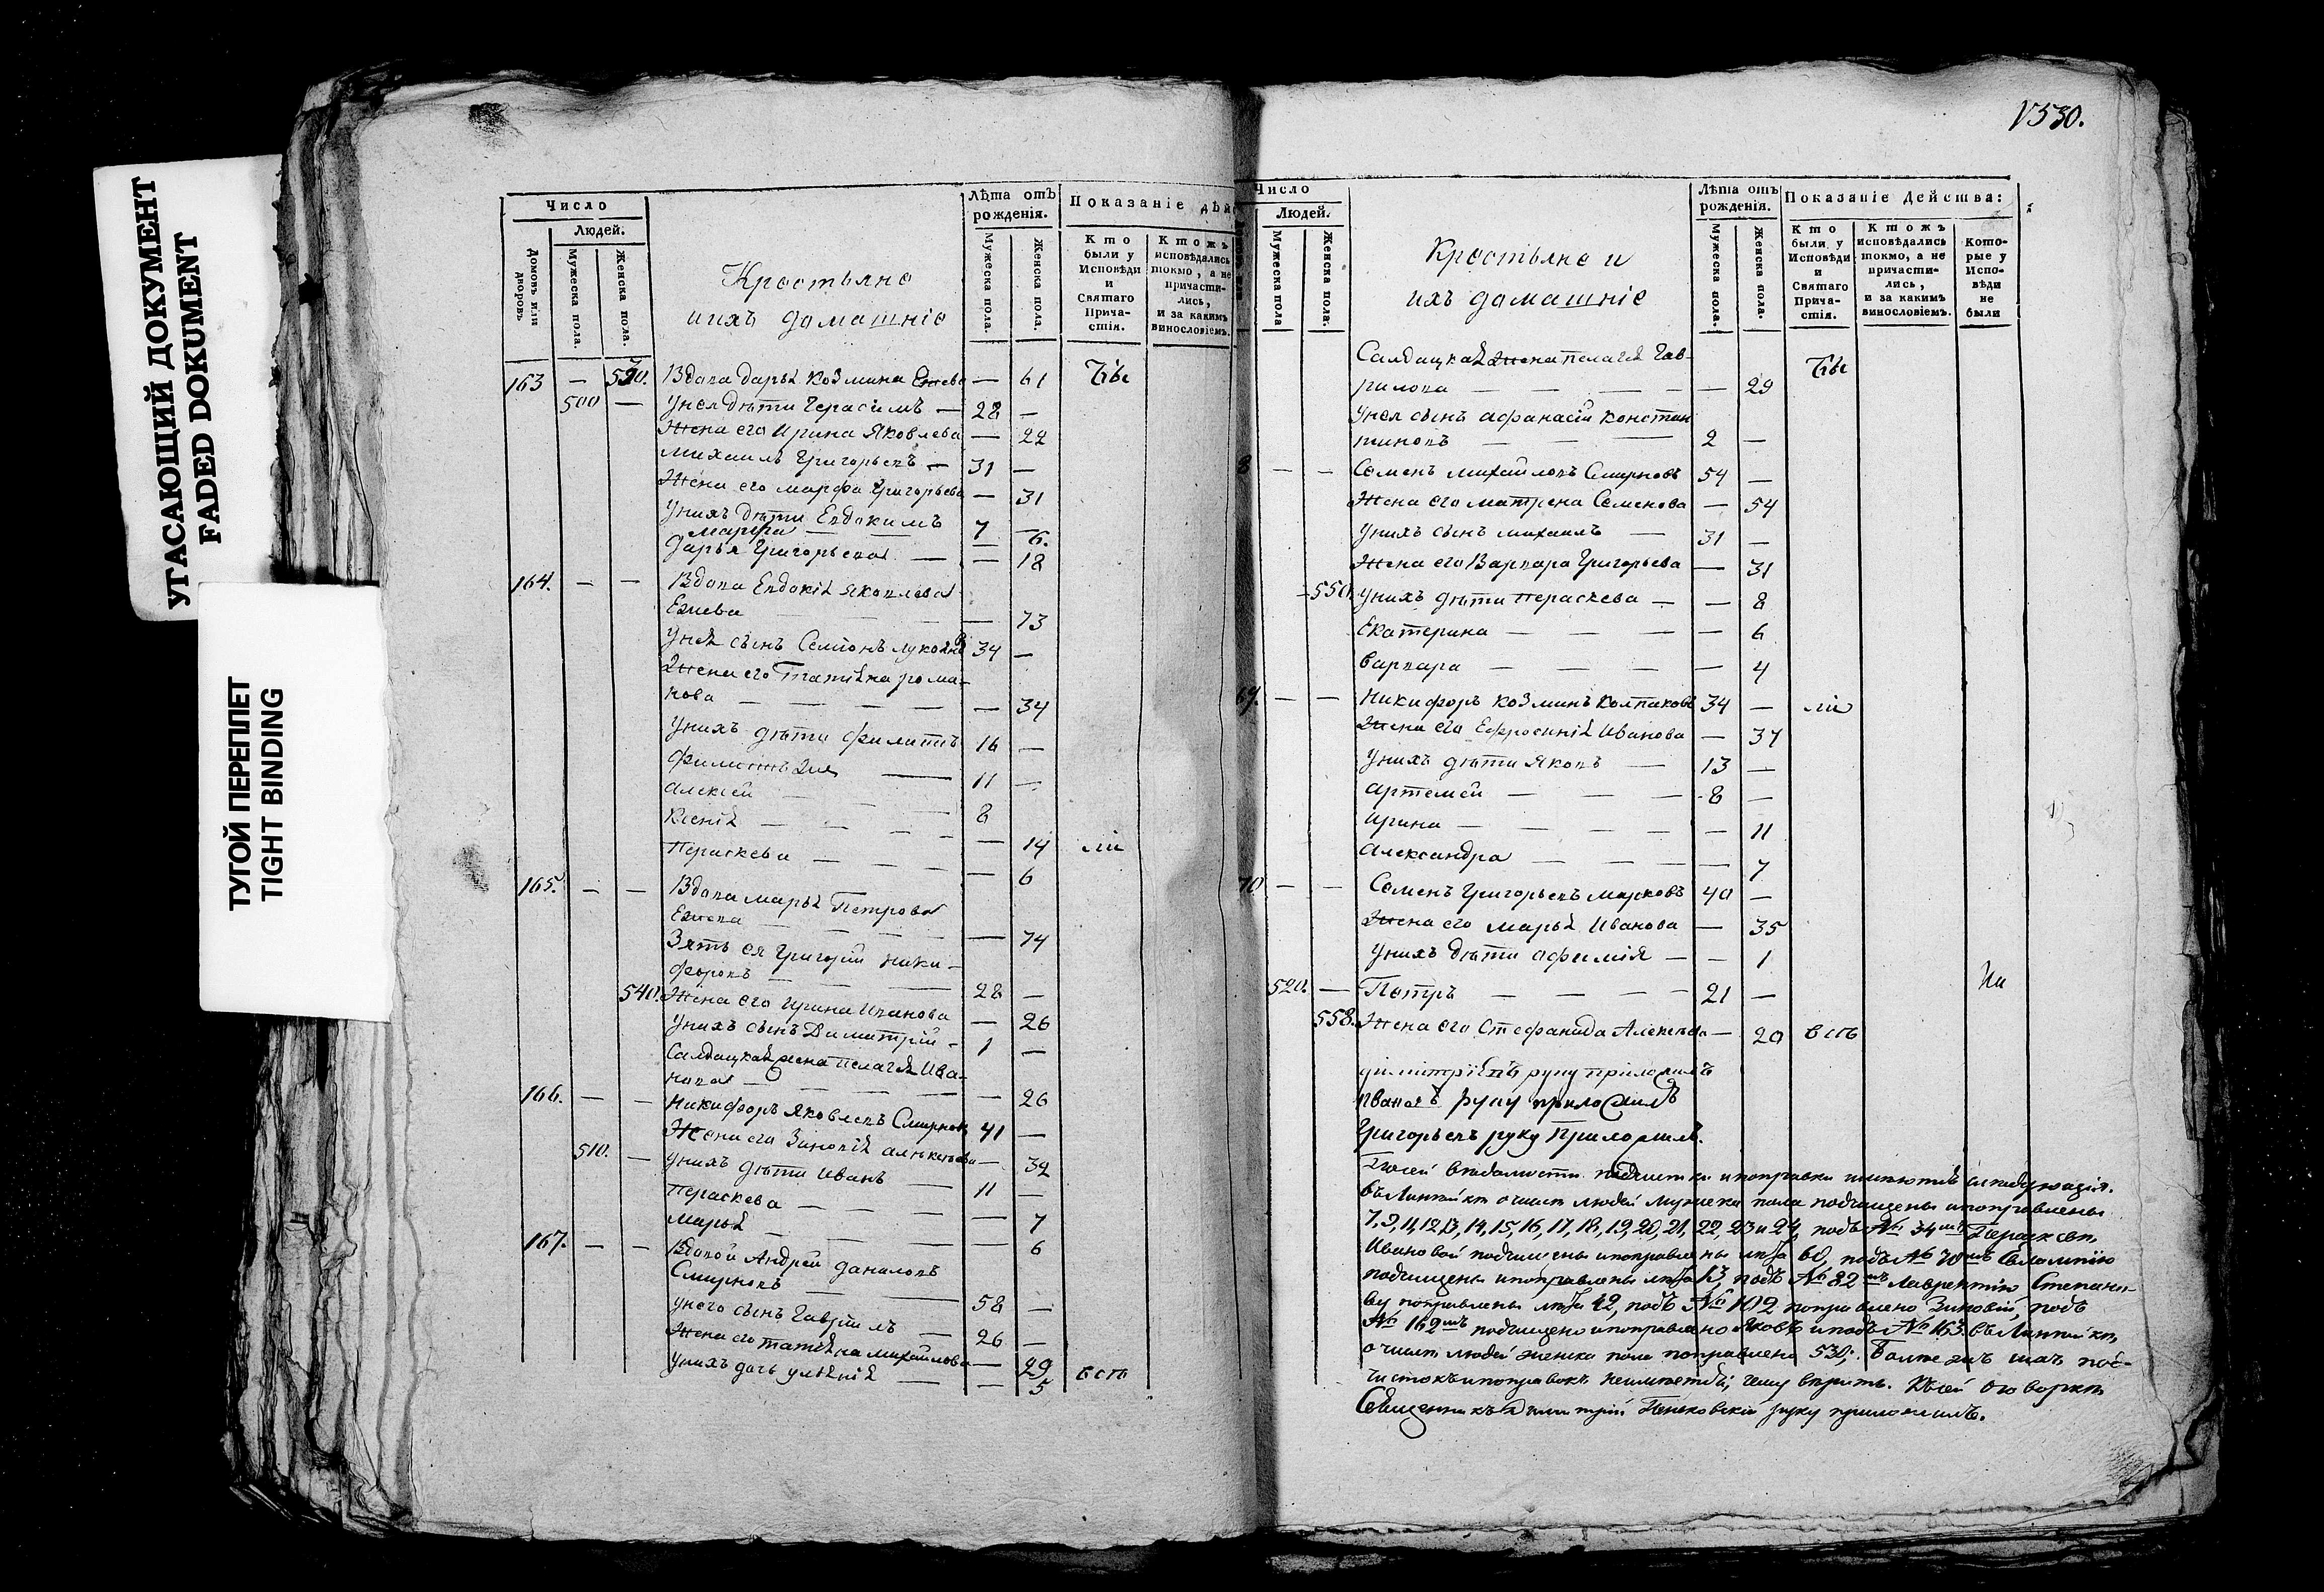 УГАСАЮЩИЙ ДОКУМЕНТ
FADED DOKUMENT
ТУГОЙ ПЕРЕПЛЕТ
TIGHT BINDING
Число
Людей.
Домовъ или дворовъ
Мужеска пола.
Женска пола.
Крестьяне
и ихъ домашніе
Лѣта отъ
рожденія.
Мужеска пола.
Женска пола.
Показаніе дѣй
Кто
были у
Исповѣди
и
Святаго
Прича-
стія.
Ктожъ
исповѣдались
токмо, а не
причасти-
лись,
и за какимъ
винословіемъ.
163 — 530. Вдова Дарья Козмина — 61
500 — У нея дѣти Герасимъ — 28 —
Жена его Ирина Яковлева — 22
Михаилъ Григорьевъ — 31 —
Жена его Марфа Григорьева — 31
У нихъ дѣти Евдокимъ 7 —
Марфа — — 6.
Дарья Григорьева — — 18
164. — — Вдова Евдокія Яковлева
Ежева — — 73
У нея сынъ Семіонъ 34 —
Жена его Татіяна Рома-
нова — — — — — 34
У нихъ дѣти Филипъ 16 —
11 —
Алексей — — — 8
Ксенія — — — — — 14
Пераскева — — — — 6
165. — — Вдова Марья Петрова
Ежева — — — — 74
Зять ея Григорій Ники-
форовъ — — — 28 —
540. Жена его Ирина Иванова — 26
У нихъ сынъ Димитрій — 1 —
Салдацкая жена Пелагея Ива-
нова — — — — — 26
166. — — Никифоръ Яковлевъ Смирнов 41 —
Жена его Зиновія Алексѣева — 32
510. — У нихъ дѣти Иванъ — 11 —
Пераскева — — — — 7
Марья — — — — 6
167. — — Вдовой Андрей Даниловъ
Смирновъ — 58 —
У него сынъ Гавріилъ — 26 —
Жена его Татіяна Михайлова — 29
У нихъ дочь Уліянія — — 5
V530.
Число
Людей.
Мужеска пола
Женска пола.
Крестьяне и
ихъ домашніе
Лѣта отъ
рожденія.
Мужеска пола.
Женска пола.
Показаніе Действа:
Кто
были у
Исповѣди
и
Святаго
Прича-
стія.
Ктожъ
исповѣдались
токмо, а не
причасти-
лись,
и за какимъ
винословіемъ.
Кото-
рые у
Испо-
вѣди
не
были
Салдацкая жена Пелагея Гав-
рилова — — — — — 29
У нея сынъ Афанасій Констан
тиновъ — — — 2 —
8 — — Семенъ Михайловъ Смирновъ 54 —
Жена его Матрена Семенова — 54
У нихъ сынъ Михаилъ — 31 —
Жена его Варвара Григорьева — 31
550. У нихъ дѣти Пераскева — — 8
Екатерина — — — — 6
Варвара — — — — 4
69. — — Никифоръ Козминъ Колпаковъ 34 —
Жена его Ефросинія Иванова — 37
У нихъ дѣти Яковъ — 13 —
Артемей — — — 8 —
Ирина — — — — — 11
Александра — — — — 7
70 — — Семенъ Григорьевъ Марковъ 40 —
Жена его Марья Иванова — 35
У нихъ дѣти Афимія — — 1
520. — Петръ — — — — 21 —
558. Жена его Стефанида Алексѣева — 20
руку приложилъ
Ивановъ руку приложилъ
Григорьевъ руку приложилъ.
людей мужеска пола подчищены и поправлены
7, 9, 11, 12, 13, 14, 15, 16, 17, 18, 19, 20, 21, 22, 23 и 24, подъ № 34мъ
Ивановой подчищены и поправлены лѣта 60, подъ № 70мъ
подчищены и поправлены лѣта 13, подъ № 82мъ Лаврентию Степано-
ву поправлены лѣта 42, подъ № 102 поправлено Зиновій, подъ
№ 162мъ подчищено и поправлено Яковъ и подъ № 163.
о числѣ людей женска пола поправлено 530;
чистокъ и поправокъ
Священникъ Димитрій руку приложилъ.